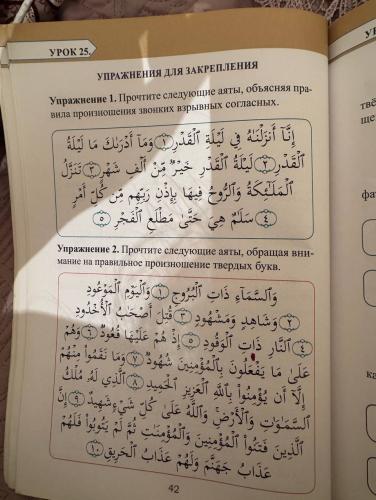 УРОК 25.
УПРАЖНЕНИЯ ДЛЯ ЗАКРЕПЛЕНИЯ
Упражнение 1. Прочтите следующие аяты, объясняя пра-
вила произношения звонких взрывных согласных.
إِنَّآ أَنزَلْنَـٰهُ فِي لَيْلَةِ ٱلْقَدْرِ ١ وَمَآ أَدْرَىٰكَ مَا لَيْلَةُ
ٱلْقَدْرِ ٢ لَيْلَةُ ٱلْقَدْرِ خَيْرٌ مِّنْ أَلْفِ شَهْرٍ ٣ تَنَزَّلُ
ٱلْمَلَـٰٓئِكَةُ وَٱلرُّوحُ فِيهَا بِإِذْنِ رَبِّهِم مِّن كُلِّ أَمْرٍ
٤ سَلَـٰمٌ هِيَ حَتَّىٰ مَطْلَعِ ٱلْفَجْرِ ٥
Упражнение 2. Прочтите следующие аяты, обращая вни-
мание на правильное произношение твердых букв.
وَٱلسَّمَآءِ ذَاتِ ٱلْبُرُوجِ ١ وَٱلْيَوْمِ ٱلْمَوْعُودِ
٢ وَشَاهِدٍ وَمَشْهُودٍ ٣ قُتِلَ أَصْحَـٰبُ ٱلْأُخْدُودِ
٤ ٱلنَّارِ ذَاتِ ٱلْوَقُودِ ٥ إِذْ هُمْ عَلَيْهَا قُعُودٌ ٦ وَهُمْ
عَلَىٰ مَا يَفْعَلُونَ بِٱلْمُؤْمِنِينَ شُهُودٌ ٧ وَمَا نَقَمُوا۟ مِنْهُمْ
إِلَّآ أَن يُؤْمِنُوا۟ بِٱللَّهِ ٱلْعَزِيزِ ٱلْحَمِيدِ ٨ ٱلَّذِي لَهُۥ مُلْكُ
ٱلسَّمَـٰوَٰتِ وَٱلْأَرْضِ ۚ وَٱللَّهُ عَلَىٰ كُلِّ شَيْءٍ شَهِيدٌ ٩ إِنَّ
ٱلَّذِينَ فَتَنُوا۟ ٱلْمُؤْمِنِينَ وَٱلْمُؤْمِنَـٰتِ ثُمَّ لَمْ يَتُوبُوا۟ فَلَهُمْ
عَذَابُ جَهَنَّمَ وَلَهُمْ عَذَابُ ٱلْحَرِيقِ ١٠
42